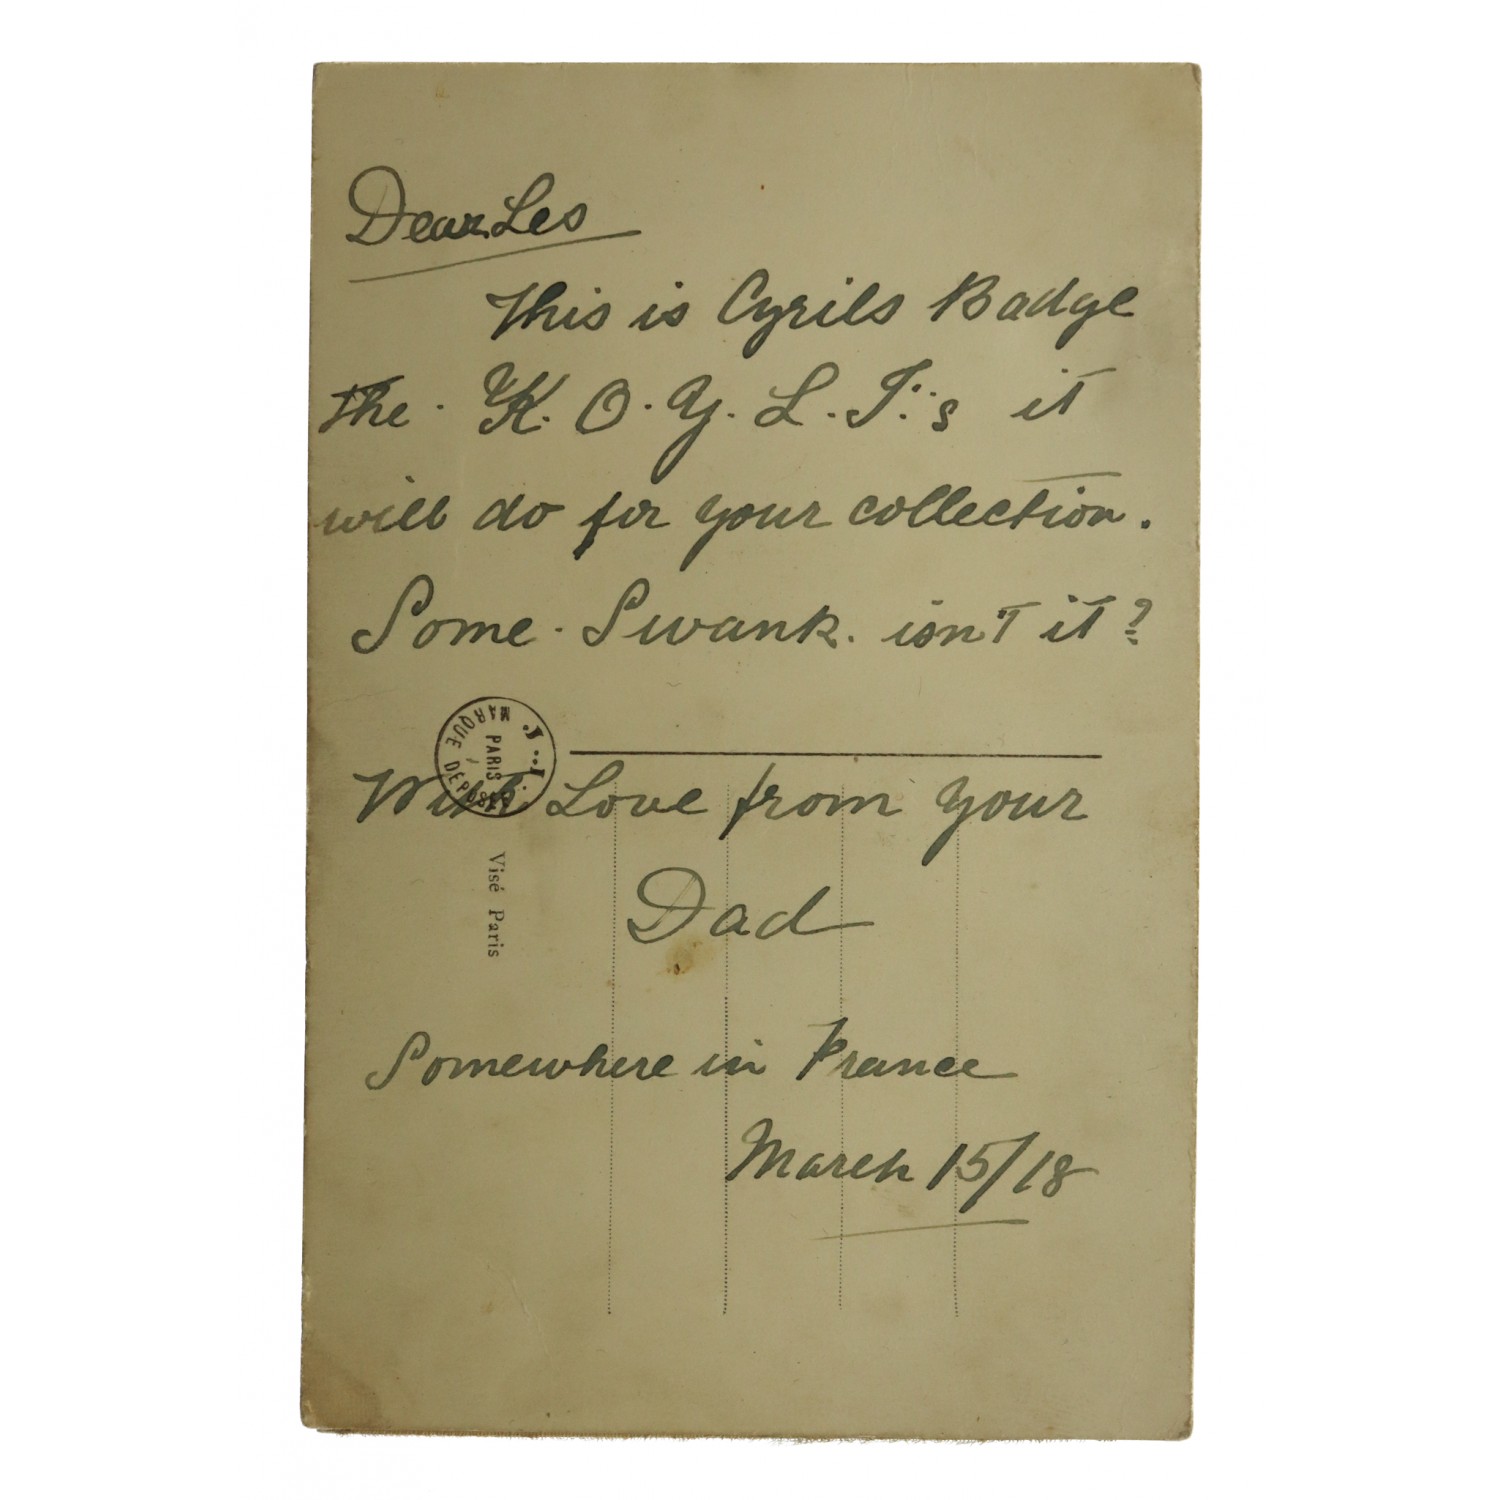 Dear Les
This is Cyrils Badge
the. K. O. Y. L. I.'s it
will do for your collection.
Some. Swank. isn't it?
J..I.
MARQUE DEPOSÉE
PARIS
With Love from your
Dad
Visé Paris
Somewhere in France
March 15/18